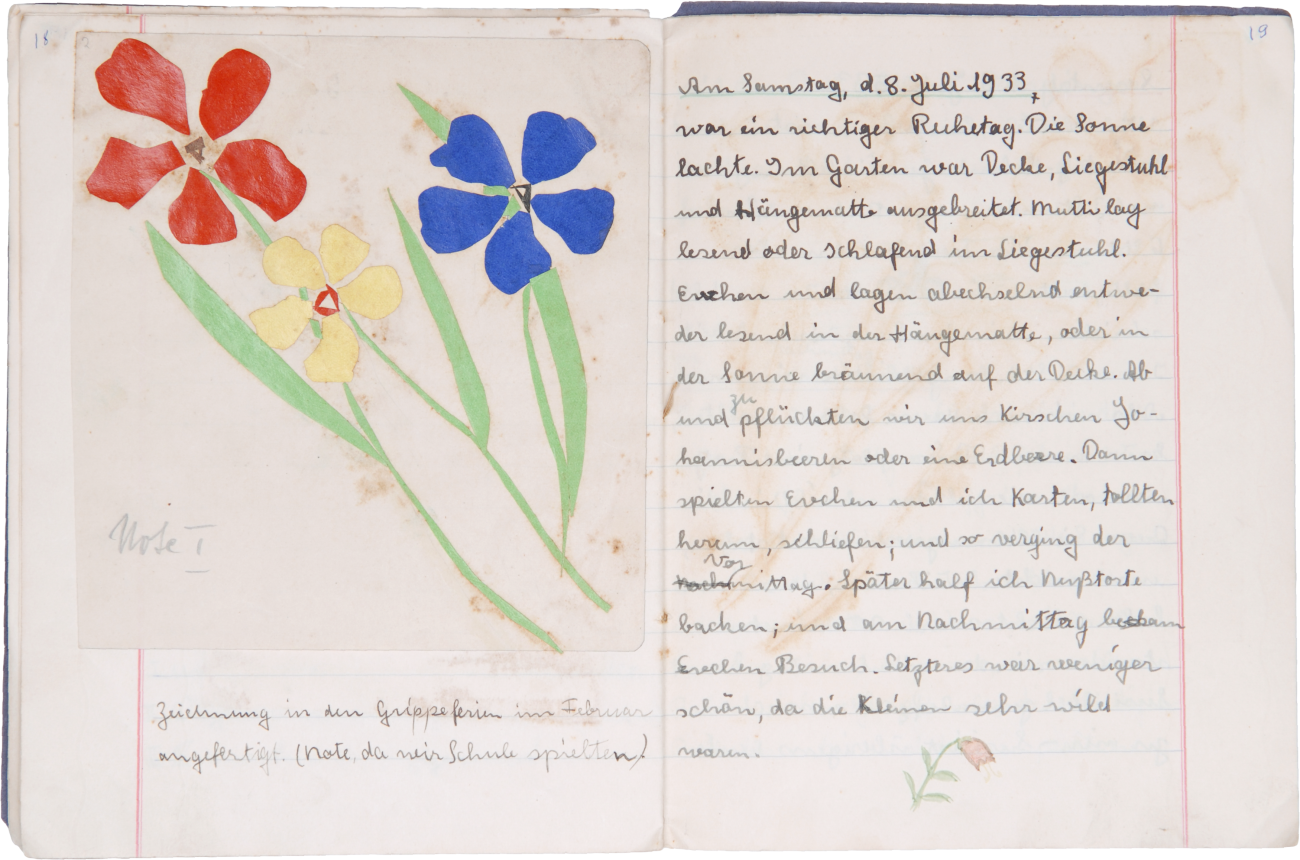 18
Note I
Zeichnung in den Grippeferien im Februar
angefertigt. (Note, da wir Schule spielten.)
19
Am Samstag, d. 8. Juli 1933,
war ein richtiger Ruhetag. Die Sonne
lachte. Im Garten war Decke, Liegestuhl
und Hängematte ausgebreitet. Mutti lag
lesend oder schlafend im Liegestuhl.
Evchen und lagen abechselnd entwe-
der lesend in der Hängematte, oder in
der Sonne bräunend auf der Decke. Ab
und zu pflückten wir uns Kirschen Jo-
hannisbeeren oder eine Erdbeere. Dann
spielten Evchen und ich Karten, tollten
herum, schliefen; und so verging der
Vormittag. Später half ich Nußtorte
backen; und am Nachmittag bekam
Evchen Besuch. Letzteres war weniger
schön, da die Kleinen sehr wild
waren.